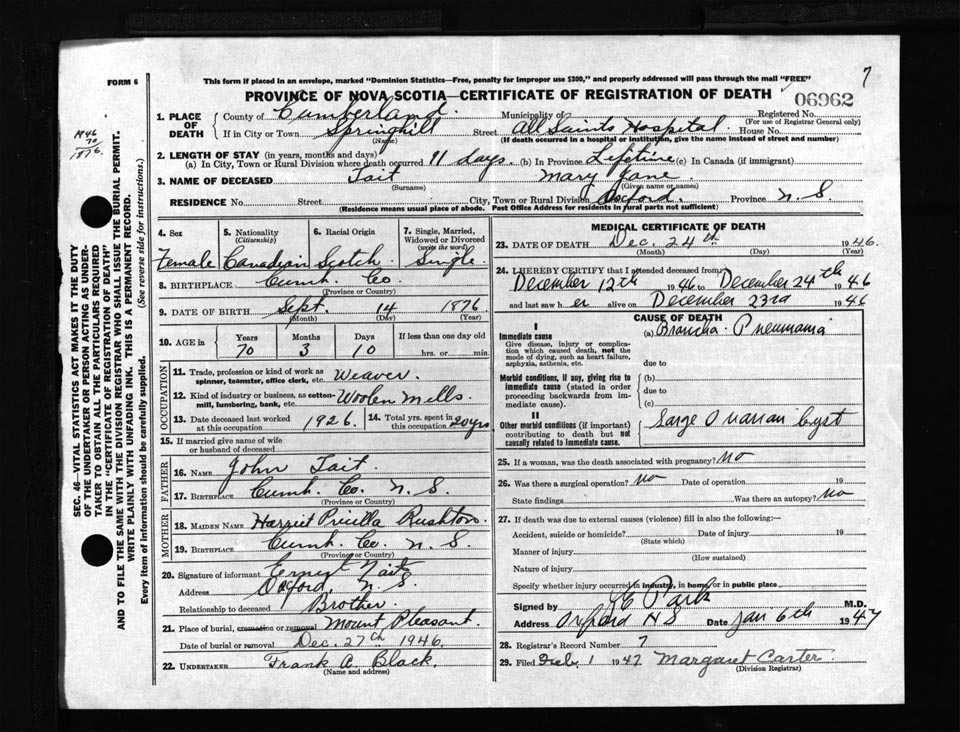 7
FORM 6
This form if placed in an envelope, marked "Dominion Statistics—Free, penalty for improper use $300," and properly addressed will pass through the mail "FREE"
PROVINCE OF NOVA SCOTIA—CERTIFICATE OF REGISTRATION OF DEATH
06962
1946
70
1876
SEC. 46—VITAL STATISTICS ACT MAKES IT THE DUTY
OF THE UNDERTAKER OR PERSON ACTING AS UNDER-
TAKER TO OBTAIN ALL THE PARTICULARS REQUIRED
IN THE "CERTIFICATE OF REGISTRATION OF DEATH"
AND TO FILE THE SAME WITH THE DIVISION REGISTRAR WHO SHALL ISSUE THE BURIAL PERMIT.
WRITE PLAINLY WITH UNFADING INK. THIS IS A PERMANENT RECORD.
Every item of information should be carefully supplied. (See reverse side for instructions.)
1. PLACE OF DEATH
County of Cumberland Municipality of Registered No.
(For use of Registrar General only)
If in City or Town Springhill Street All Saints Hospital House No.
(Name) (If death occurred in a hospital or institution, give the name instead of street and number)
2. LENGTH OF STAY (in years, months and days)
(a) In City, Town or Rural Division where death occurred 11 days. (b) In Province Lifetime (c) In Canada (if immigrant)
3. NAME OF DECEASED Tait Mary Jane
(Surname) (Given name or names)
RESIDENCE No. Street City, Town or Rural Division Oxford. Province N.S.
(Residence means usual place of abode. Post Office Address for residents in rural parts not sufficient)
4. Sex
Female
5. Nationality
(Citizenship)
Canadian
6. Racial Origin
Scotch
7. Single, Married,
Widowed or Divorced
(write the word)
Single
8. BIRTHPLACE Cumb. Co
(Province or Country)
9. DATE OF BIRTH Sept. 14 1876
(Month) (Day) (Year)
10. AGE in
Years Months Days If less than one day old
70 3 10 hrs. or min.
OCCUPATION
11. Trade, profession or kind of work as
spinner, teamster, office clerk, etc. Weaver.
12. Kind of industry or business, as cotton-
mill, lumbering, bank, etc. Woolen Mills
13. Date deceased last worked
at this occupation 1926.
14. Total yrs. spent in
this occupation 20 yrs
15. If married give name of wife
or husband of deceased
FATHER
16. NAME John Tait.
17. BIRTHPLACE Cumb. Co. N.S.
(Province or Country)
MOTHER
18. MAIDEN NAME Harriet Pricilla Rushton.
19. BIRTHPLACE Cumb. Co. N.S.
(Province or Country)
20. Signature of informant Ernest Tait
Address Oxford N.S.
Relationship to deceased Brother.
21. Place of burial, cremation or removal Mount Pleasant.
Date of burial or removal Dec. 27th 1946.
22. UNDERTAKER Frank A. Black.
(Name and address)
MEDICAL CERTIFICATE OF DEATH
23. DATE OF DEATH Dec. 24th 1946.
(Month) (Day) (Year)
24. I HEREBY CERTIFY that I attended deceased from
December 12th 1946 to December 24th 1946
and last saw her alive on December 23rd 1946
CAUSE OF DEATH
I
Immediate cause
Give disease, injury or complica-
tion which caused death, not the
mode of dying, such as heart failure,
asphyxia, asthenia, etc.
(a) Broncho-Pneumonia
due to
Morbid conditions, if any, giving rise to
immediate cause (stated in order
proceeding backwards from im-
mediate cause).
(b)
due to
(c)
II
Other morbid conditions (if important)
contributing to death but not
causally related to immediate cause.
Large Ovarian Cyst
25. If a woman, was the death associated with pregnancy? No
26. Was there a surgical operation? No Date of operation 19
State findings Was there an autopsy? No
27. If death was due to external causes (violence) fill in also the following:—
Accident, suicide or homicide? Date of injury 19
(State which)
Manner of injury
(How sustained)
Nature of injury
Specify whether injury occurred in industry, in home, or in public place
Signed by Park M.D.
Address Oxford N S Date Jan 6th 1947
28. Registrar's Record Number 7
29. Filed Feb. 1 1947 Margaret Carter.
(Division Registrar)